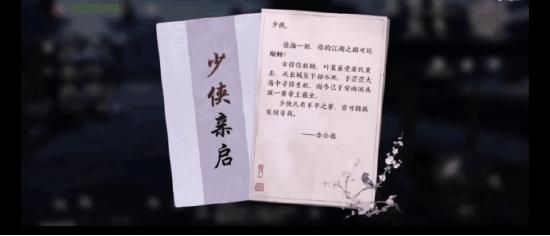 少侠亲启
少侠，
徐海一别，你的江湖之路可还
顺畅？
幸得你相助，叶某虽受若狄重
击，从长城坠下却不死，于茫茫大
海中寻得生机，而今已于安南国成
就一番帝王霸业。
少侠凡有不平之事，皆可提孤
宝剑寻我。
——李公蕴